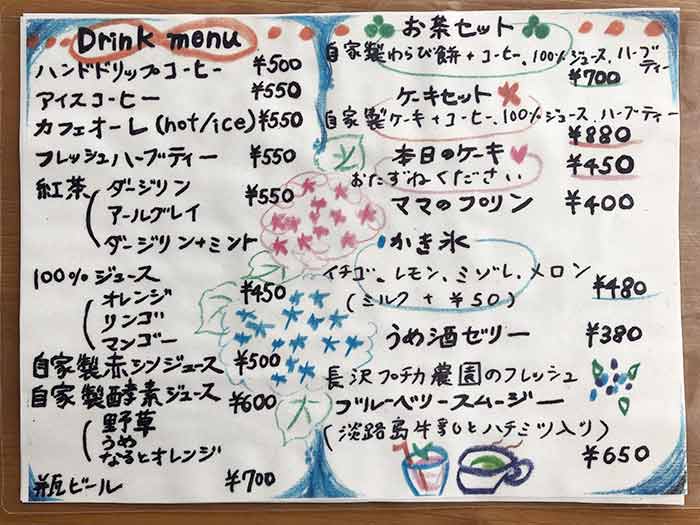 Drink menu
ハンドドリップコーヒー ¥500
アイスコーヒー ¥550
カフェオーレ(hot/ice) ¥550
フレッシュハーブティー ¥550
紅茶 ダージリン ¥550
アールグレイ
ダージリン+ミント
100%ジュース ¥450
オレンジ
リンゴ
マンゴー
自家製赤シソジュース ¥500
自家製酵素ジュース ¥600
野草
うめ
なるとオレンジ
瓶ビール ¥700
お茶セット
自家製わらび餅+コーヒー、100%ジュース、ハーブティー
¥700
ケーキセット
自家製ケーキ+コーヒー、100%ジュース、ハーブティー
¥880
本日のケーキ ¥450
おたずねください
ママのプリン ¥400
かき氷
イチゴ、レモン、ミゾレ、メロン ¥480
(ミルク+¥50)
うめ酒ゼリー ¥380
長沢プチカ農園のフレッシュ
ブルーベリースムージー
(淡路島牛乳とハチミツ入り)
¥650